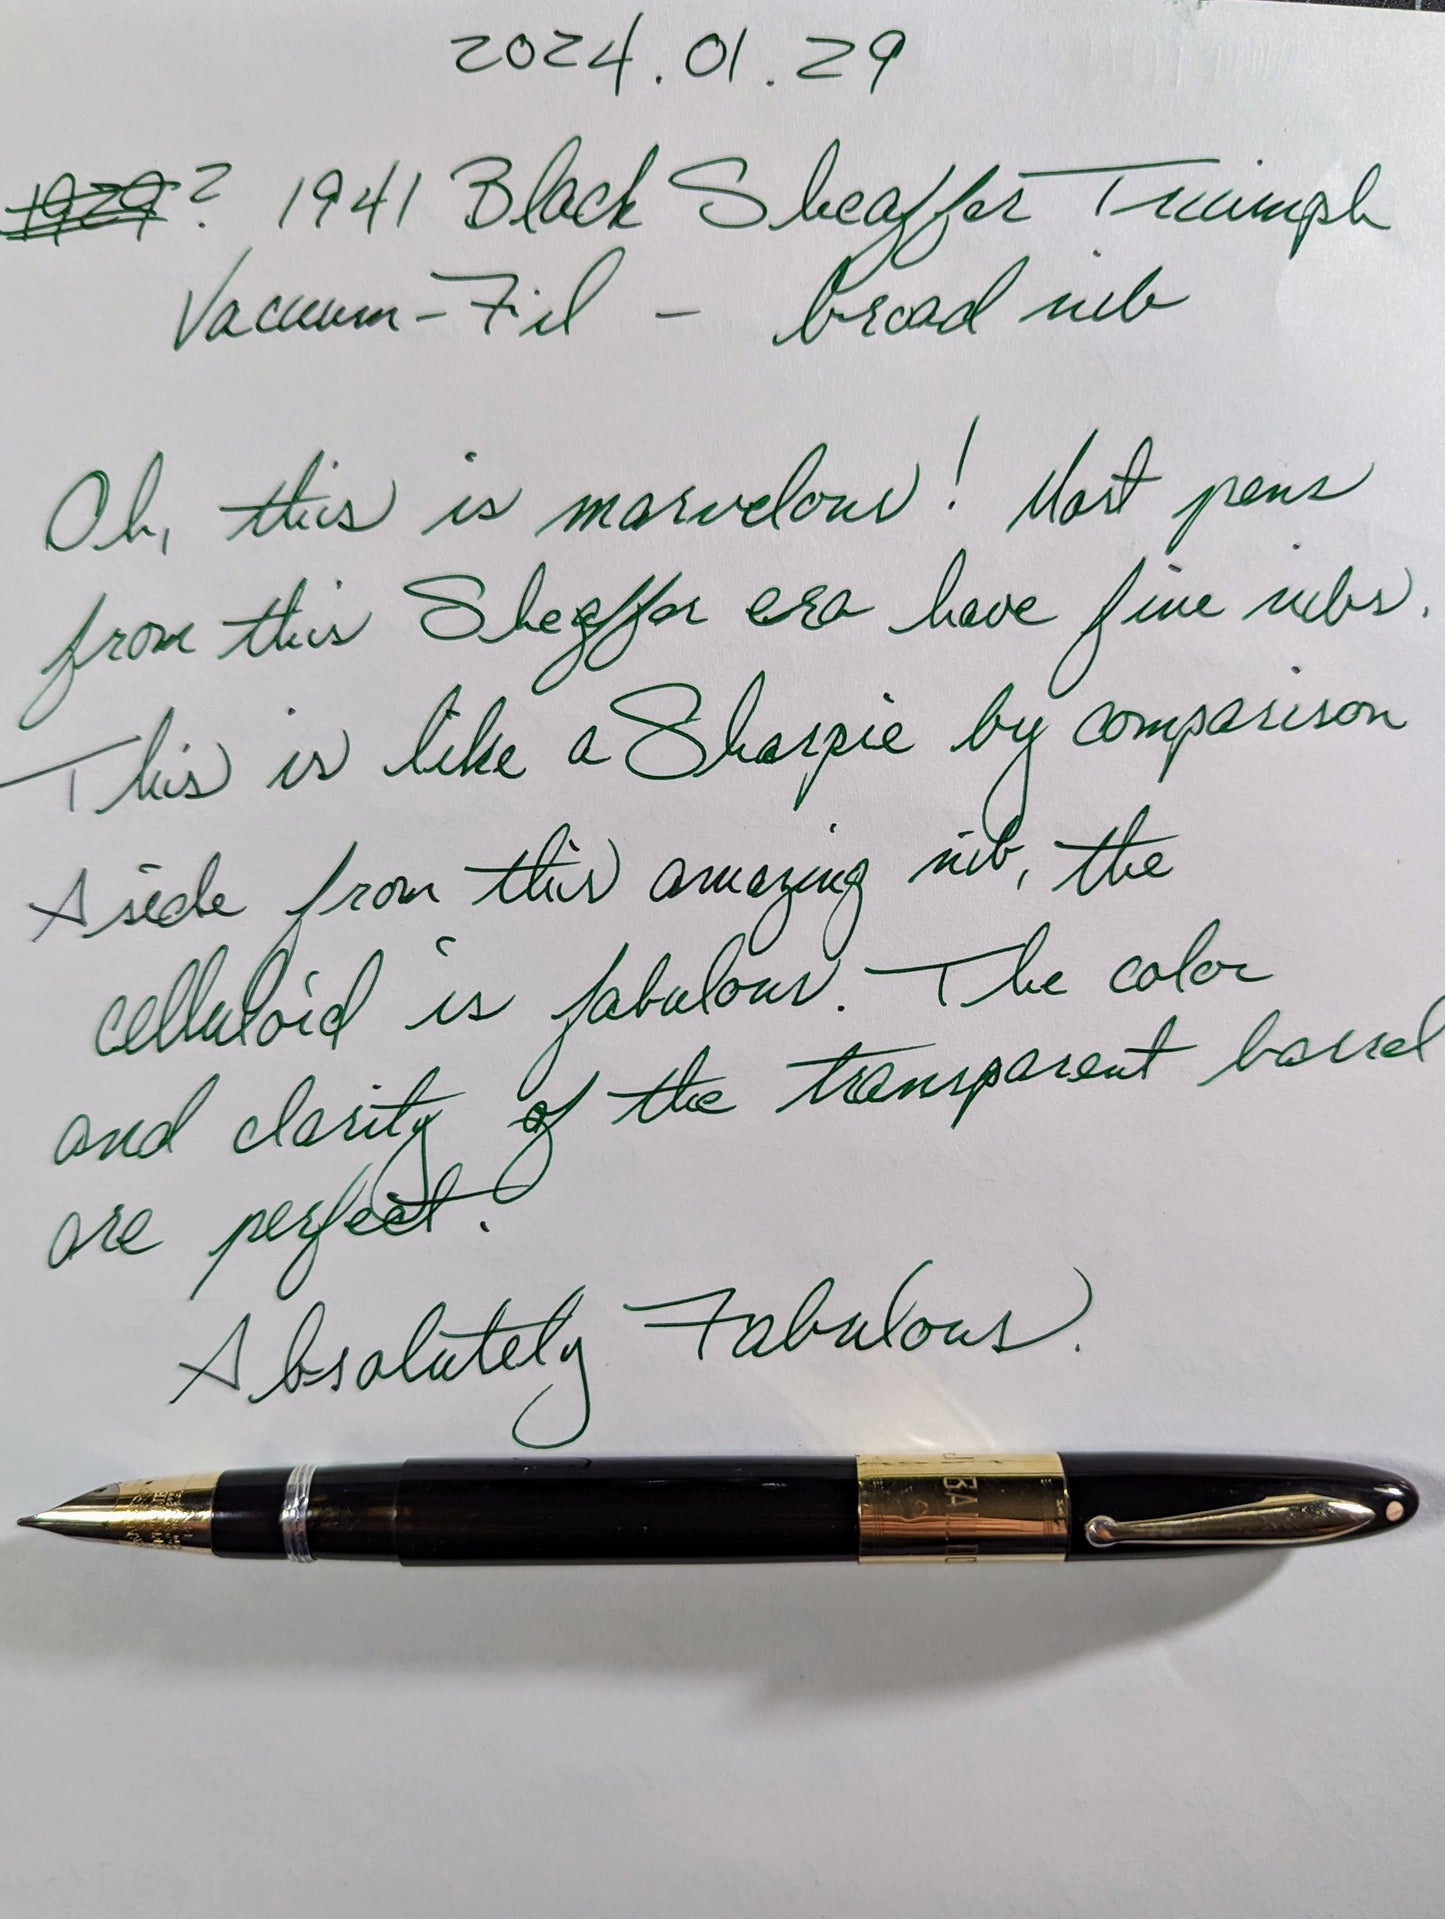 2024.01.29
1929? 1941 Black Sheaffer Triumph
Vacuum-Fil - broad nib
Oh, this is marvelous! Most pens
from this Sheaffer era have fine nibs.
This is like a Sharpie by comparison
Aside from this amazing nib, the
celluloid is fabulous. The color
and clarity of the transparent barrel
are perfect.
Absolutely Fabulous.